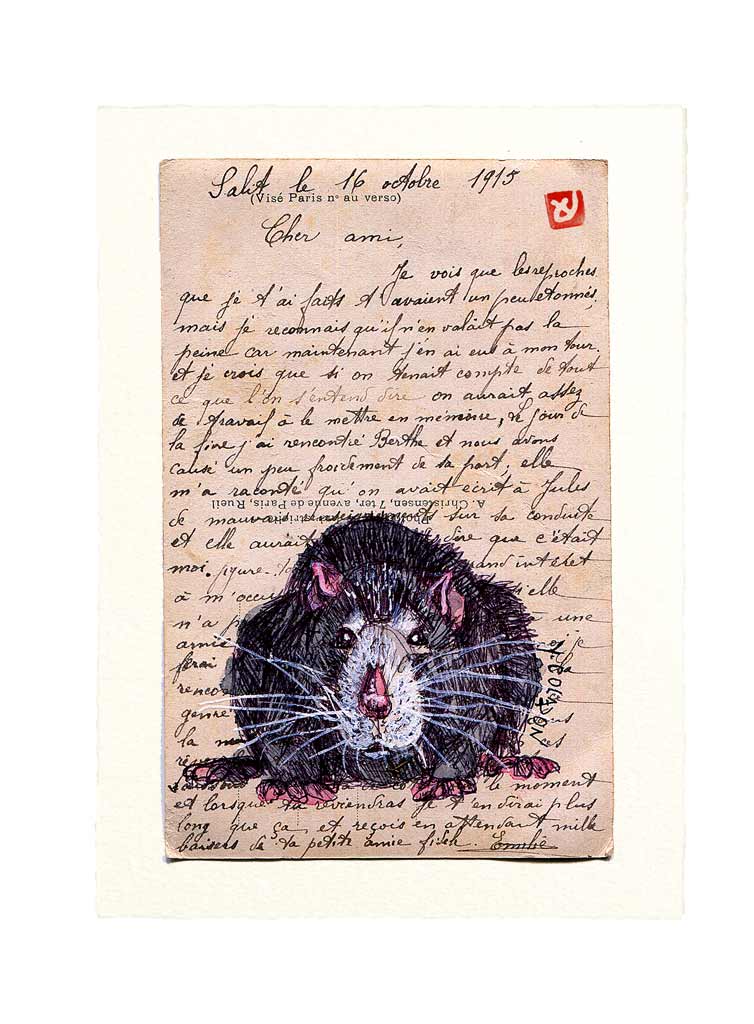 Salit le 16 octobre 1915
(Visé Paris n° au verso)
Cher ami,
Je vois que les reproches
que je t'ai faits t'avaient un peu etonnés,
mais je reconnais qu'il n'en valait pas la
peine car maintenant j'en ai eus à mon tour.
et je crois que si on tenait compte de tout
ce que l'on s'entend dire on aurait assez
de travail à le mettre en mémoire, le jour de
la foire j'ai rencontré Berthe et nous avons
causé un peu froidement de sa part; elle
m'a raconté qu'on avait écrit à Jules
A. Christensen, 7 ter, avenue de Paris, Rueil
de mauvais renseignements sur sa conduite
et elle aurait dire que c'était
moi. grand intéret
à m'occu s'elle
n'a p à une
amie je
ferai la
rencon
genre
la me
le moment
et lorsque tu reviendras je t'en dirai plus
long que ça et reçois en attendant mille
baisers de ta petite amie Emilie